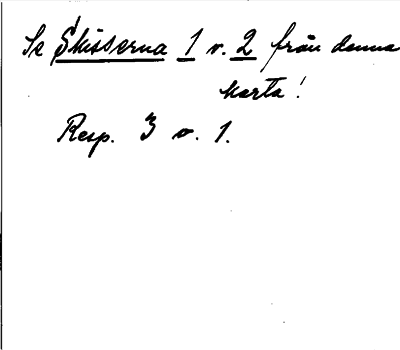 Se Skisserna 1 o. 2 från denna
karta!
Resp. 3 o. 1.